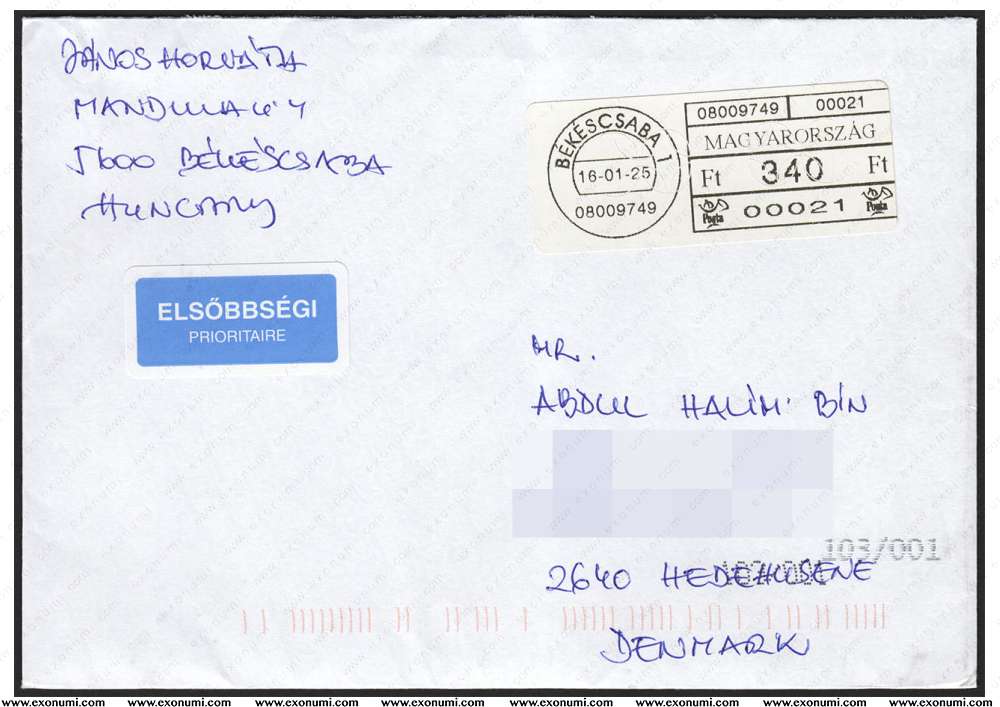 JÁNOS HORVÁTH
5600 BÉKÉSCSABA
HUNGARY
ELSŐBBSÉGI
PRIORITAIRE
BÉKÉSCSABA 1
16-01-25
08009749
08009749 00021
MAGYARORSZÁG
Ft 340 Ft
Posta 00021 Posta
MR.
ABDUL HALIM BIN
103/001
2640 HEDEHUSENE
DENMARK
www.exonumi.com www.exonumi.com www.exonumi.com www.exonumi.com www.exonumi.com www.exonumi.com www.exonumi.com www.exonumi.com